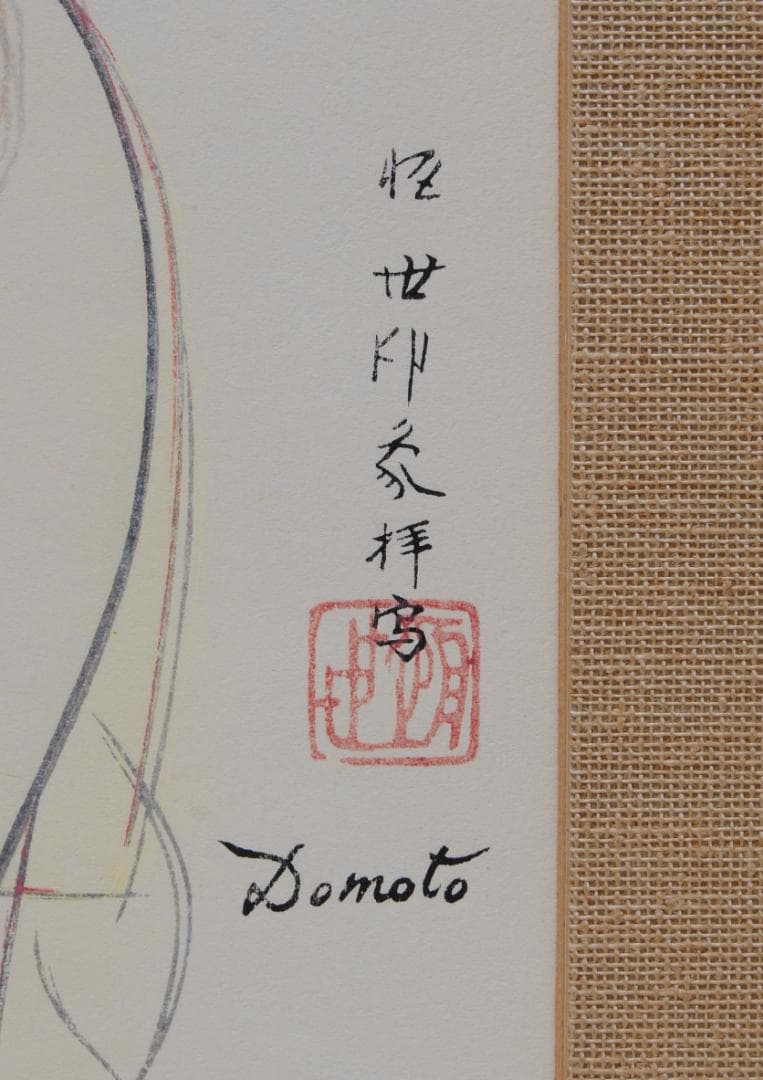 恒世印象拝写
Domoto